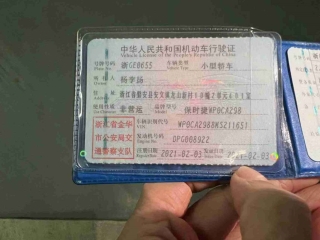 中华人民共和国机动车行驶证
Vehicle License of the People's Republic of China
号牌号码 浙GE0655 车辆类型 小型轿车
Plate No. Vehicle Type
杨孝扬
Owner
住址
Address
使用性质 非营运 品牌型号 保时捷WP0CA298
Use Character Model
浙江省金华 车辆识别代号 WP0CA2988KS211651
VIN
市公安局交 发动机号码 DPG008922
Engine No.
通警察支队 注册日期 2021-02-03 发证日期 2021-02-03
Register Date Issue Date